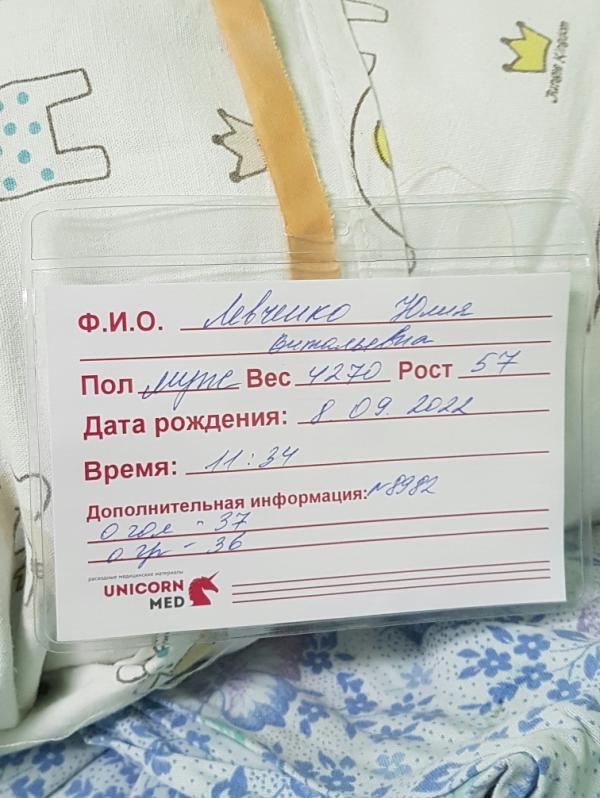 Ф.И.О. Левченко Юлия
Витальевна
Пол муж Вес 4270 Рост 57
Дата рождения: 8. 09. 2022
Время: 11:34
Дополнительная информация: №8982
О гол - 37
О гр - 36
расходные медицинские материалы
UNICORN
MED